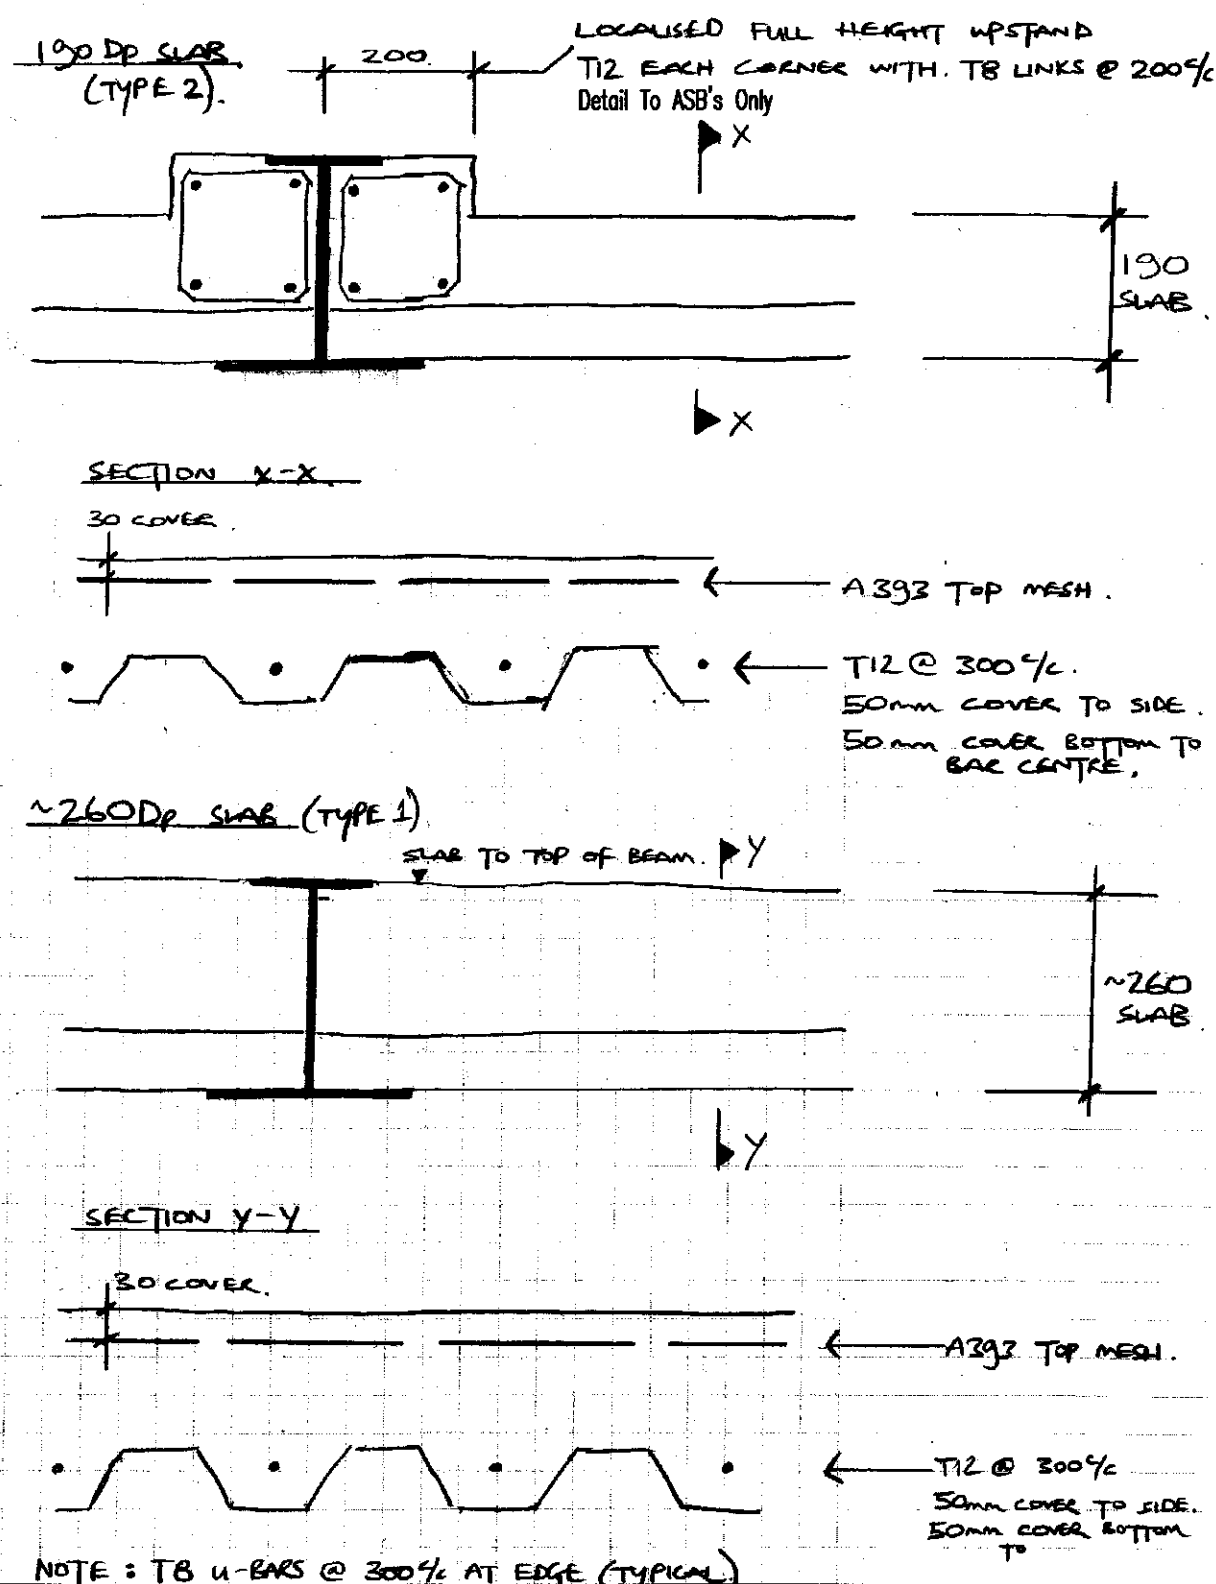 190 Dp SLAB
(TYPE 2).
200
LOCALISED FULL HEIGHT UPSTAND
T12 EACH CORNER WITH. T8 LINKS @ 200 c/c
Detail To ASB's Only
X
190
SLAB.
X
SECTION X-X
30 COVER.
A393 TOP MESH.
T12 @ 300 c/c.
50mm COVER TO SIDE.
50mm COVER BOTTOM TO
BAR CENTRE.
~260 Dp SLAB (TYPE 1)
SLAB TO TOP OF BEAM.
Y
~260
SLAB
Y
SECTION Y-Y
30 COVER.
A393 TOP MESH.
T12 @ 300 c/c
50mm COVER TO SIDE.
50mm COVER BOTTOM
TO
NOTE : T8 U-BARS @ 300 c/c AT EDGE (TYPICAL)